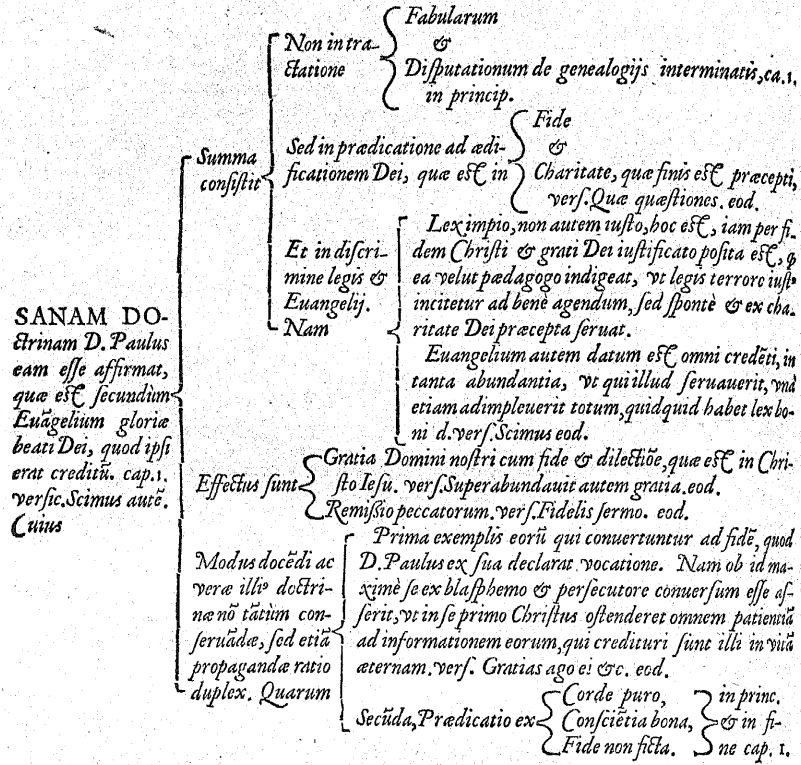 SANAM DO-
ctrinam D. Paulus
eam esse affirmat,
quæ est secundùm
Euãgelium gloriæ
beati Dei, quod ipsi
erat creditũ. cap. 1.
versic. Scimus autẽ.
Cuius
Summa
consistit
Non in tra-
ctatione
Fabularum
&
Disputationum de genealogijs interminatis, ca. 1.
in princip.
Sed in prædicatione ad ædi-
ficationem Dei, quæ est in
Fide
&
Charitate, quæ finis est præcepti,
vers. Quæ quæstiones. eod.
Et in discri-
mine legis &
Euangelij.
Nam
Lex impio, non autem iusto, hoc est, iam per fi-
dem Christi & grati Dei iustificato posita est, ꝙ
ea velut pædagogo indigeat, vt legis terrore iustꝰ
incitetur ad benè agendum, sed spontè & ex cha-
ritate Dei præcepta seruat.
Euangelium autem datum est omni credẽti, in
tanta abundantia, vt qui illud seruauerit, vnà
etiam adimpleuerit totum, quidquid habet lex bo-
ni d. vers. Scimus eod.
Effectus sunt
Gratia Domini nostri cum fide & dilectiõe, quæ est in Chri-
sto Iesu. vers. Superabundauit autem gratia. eod.
Remißio peccatorum. vers. Fidelis sermo. eod.
Modus docẽdi ac
veræ illiꝰ doctri-
næ nõ tãtùm con-
seruãdæ, sed etiã
propagandæ ratio
duplex. Quarum
Prima exemplis eorũ qui conuertuntur ad fidẽ, quod
D. Paulus ex sua declarat vocatione. Nam ob id ma-
ximè se ex blasphemo & persecutore conuersum esse as-
serit, vt in se primo Christus ostenderet omnem patientiã
ad informationem eorum, qui credituri sunt illi in vitã
æternam. vers. Gratias ago ei &c. eod.
Secũda, Prædicatio ex
Corde puro,
Consciẽtia bona,
Fide non ficta.
in princ.
& in fi-
ne cap. 1.